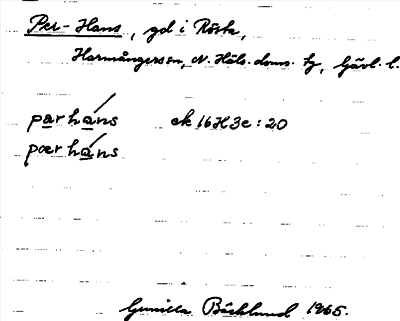 Per-Hans, gd i Rösta,
Harmångers sn, N. Häls. doms. tg, Gävl. l.
parháns ek 16H3e:20
pœrháns
Gunilla Bäcklund 1965.